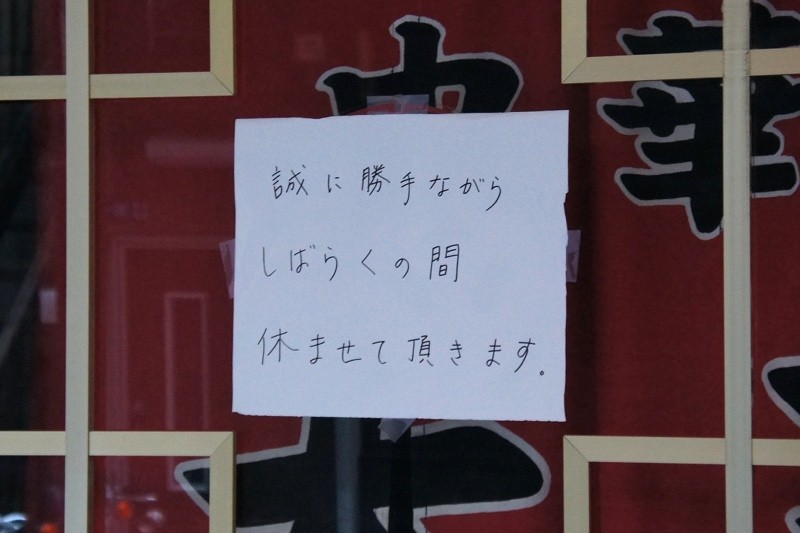 中華
誠に勝手ながら
しばらくの間
休ませて頂きます。